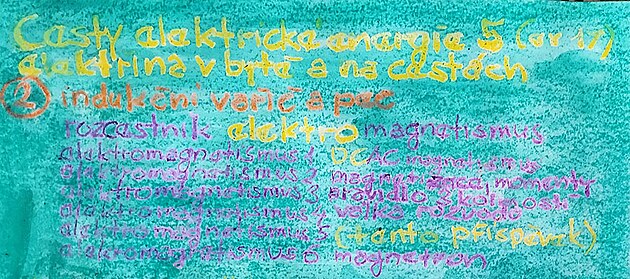 Casty elektrické energie 5 (úr 17)
elektřina v bytě a na cestách
2 indukční vařič a pec
rozcestník elektromagnetismus
elektromagnetismus 1 DCAC magnetismus
elektromagnetismus 2 magnetizace, momenty
elektromagnetismus 3
elektromagnetismus 4 velké rozvody
elektromagnetismus 5 (tento příspěvek)
elekromagnetismus 6 magnetron